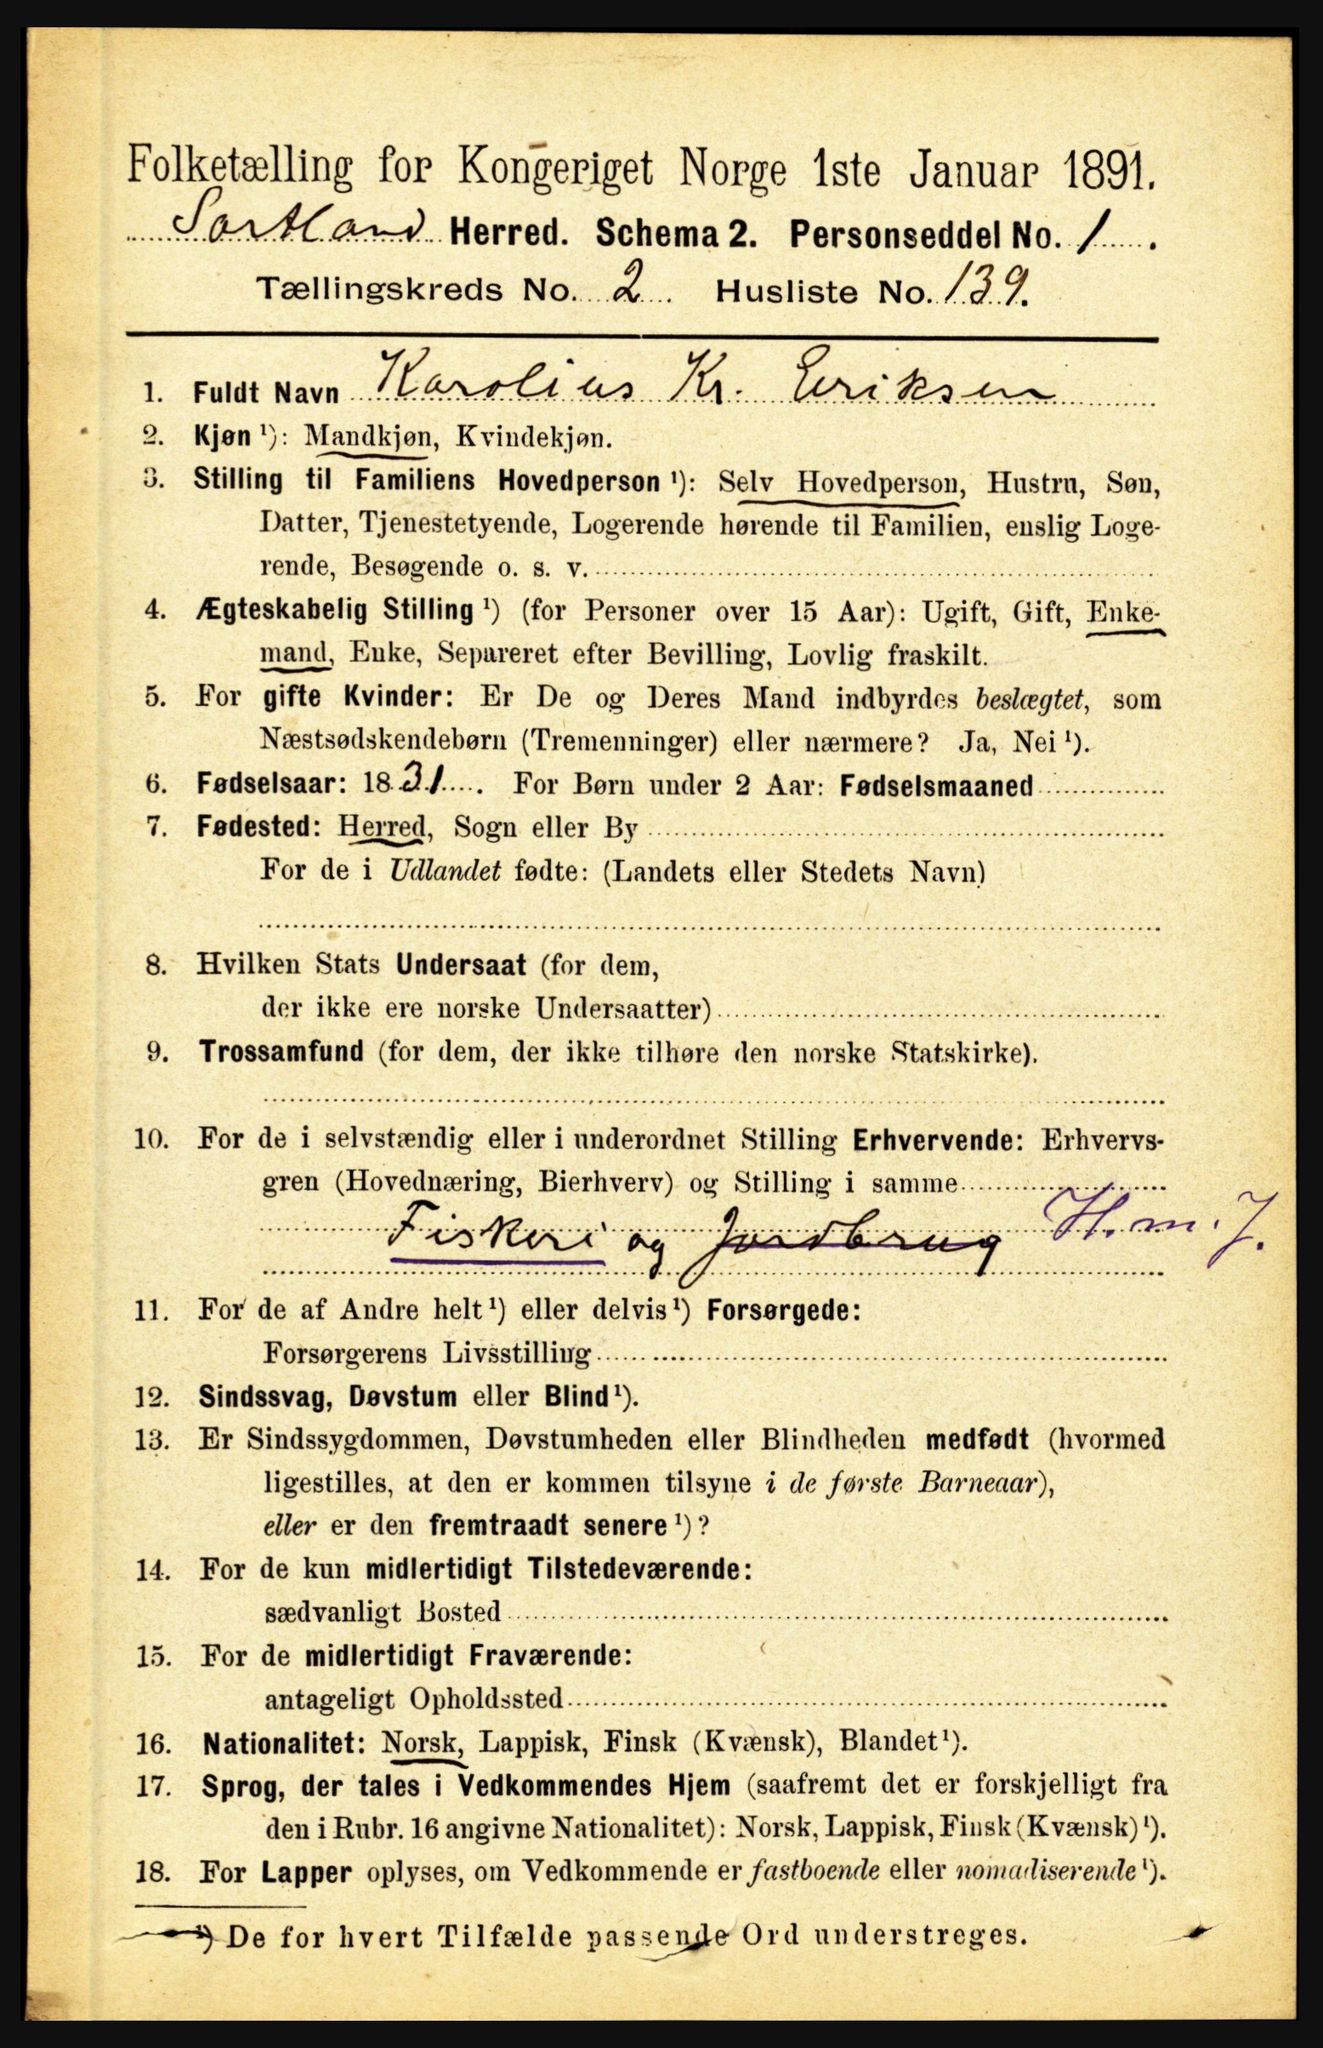 Folketælling for Kongeriget Norge 1ste Januar 1891.
Sortland Herred. Schema 2. Personseddel No. 1.
Tællingskreds No. 2 Husliste No. 139.
1. Fuldt Navn Karolius Kr. Eriksen
2. Kjøn ¹): Mandkjøn, Kvindekjøn.
3. Stilling til Familiens Hovedperson ¹): Selv Hovedperson, Hustru, Søn,
Datter, Tjenestetyende, Logerende hørende til Familien, enslig Loge-
rende, Besøgende o. s. v.
4. Ægteskabelig Stilling ¹) (for Personer over 15 Aar): Ugift, Gift, Enke-
mand, Enke, Separeret efter Bevilling, Lovlig fraskilt.
5. For gifte Kvinder: Er De og Deres Mand indbyrdes beslægtet, som
Næstsødskendebørn (Tremenninger) eller nærmere? Ja, Nei ¹).
6. Fødselsaar: 1831. For Børn under 2 Aar: Fødselsmaaned
7. Fødested: Herred, Sogn eller By
For de i Udlandet fødte: (Landets eller Stedets Navn)
8. Hvilken Stats Undersaat (for dem,
der ikke ere norske Undersaatter)
9. Trossamfund (for dem, der ikke tilhøre den norske Statskirke).
10. For de i selvstændig eller i underordnet Stilling Erhvervende: Erhvervs-
gren (Hovednæring, Bierhverv) og Stilling i samme
Fiskeri og Jordbrug H. m. J.
11. For de af Andre helt ¹) eller delvis ¹) Forsørgede:
Forsørgerens Livsstilling
12. Sindssvag, Døvstum eller Blind ¹).
13. Er Sindssygdommen, Døvstumheden eller Blindheden medfødt (hvormed
ligestilles, at den er kommen tilsyne i de første Barneaar),
eller er den fremtraadt senere ¹)?
14. For de kun midlertidigt Tilstedeværende:
sædvanligt Bosted
15. For de midlertidigt Fraværende:
antageligt Opholdssted
16. Nationalitet: Norsk, Lappisk, Finsk (Kvænsk), Blandet ¹).
17. Sprog, der tales i Vedkommendes Hjem (saafremt det er forskjelligt fra
den i Rubr. 16 angivne Nationalitet): Norsk, Lappisk, Finsk (Kvænsk) ¹).
18. For Lapper oplyses, om Vedkommende er fastboende eller nomadiserende ¹).
¹) De for hvert Tilfælde passende Ord understreges.